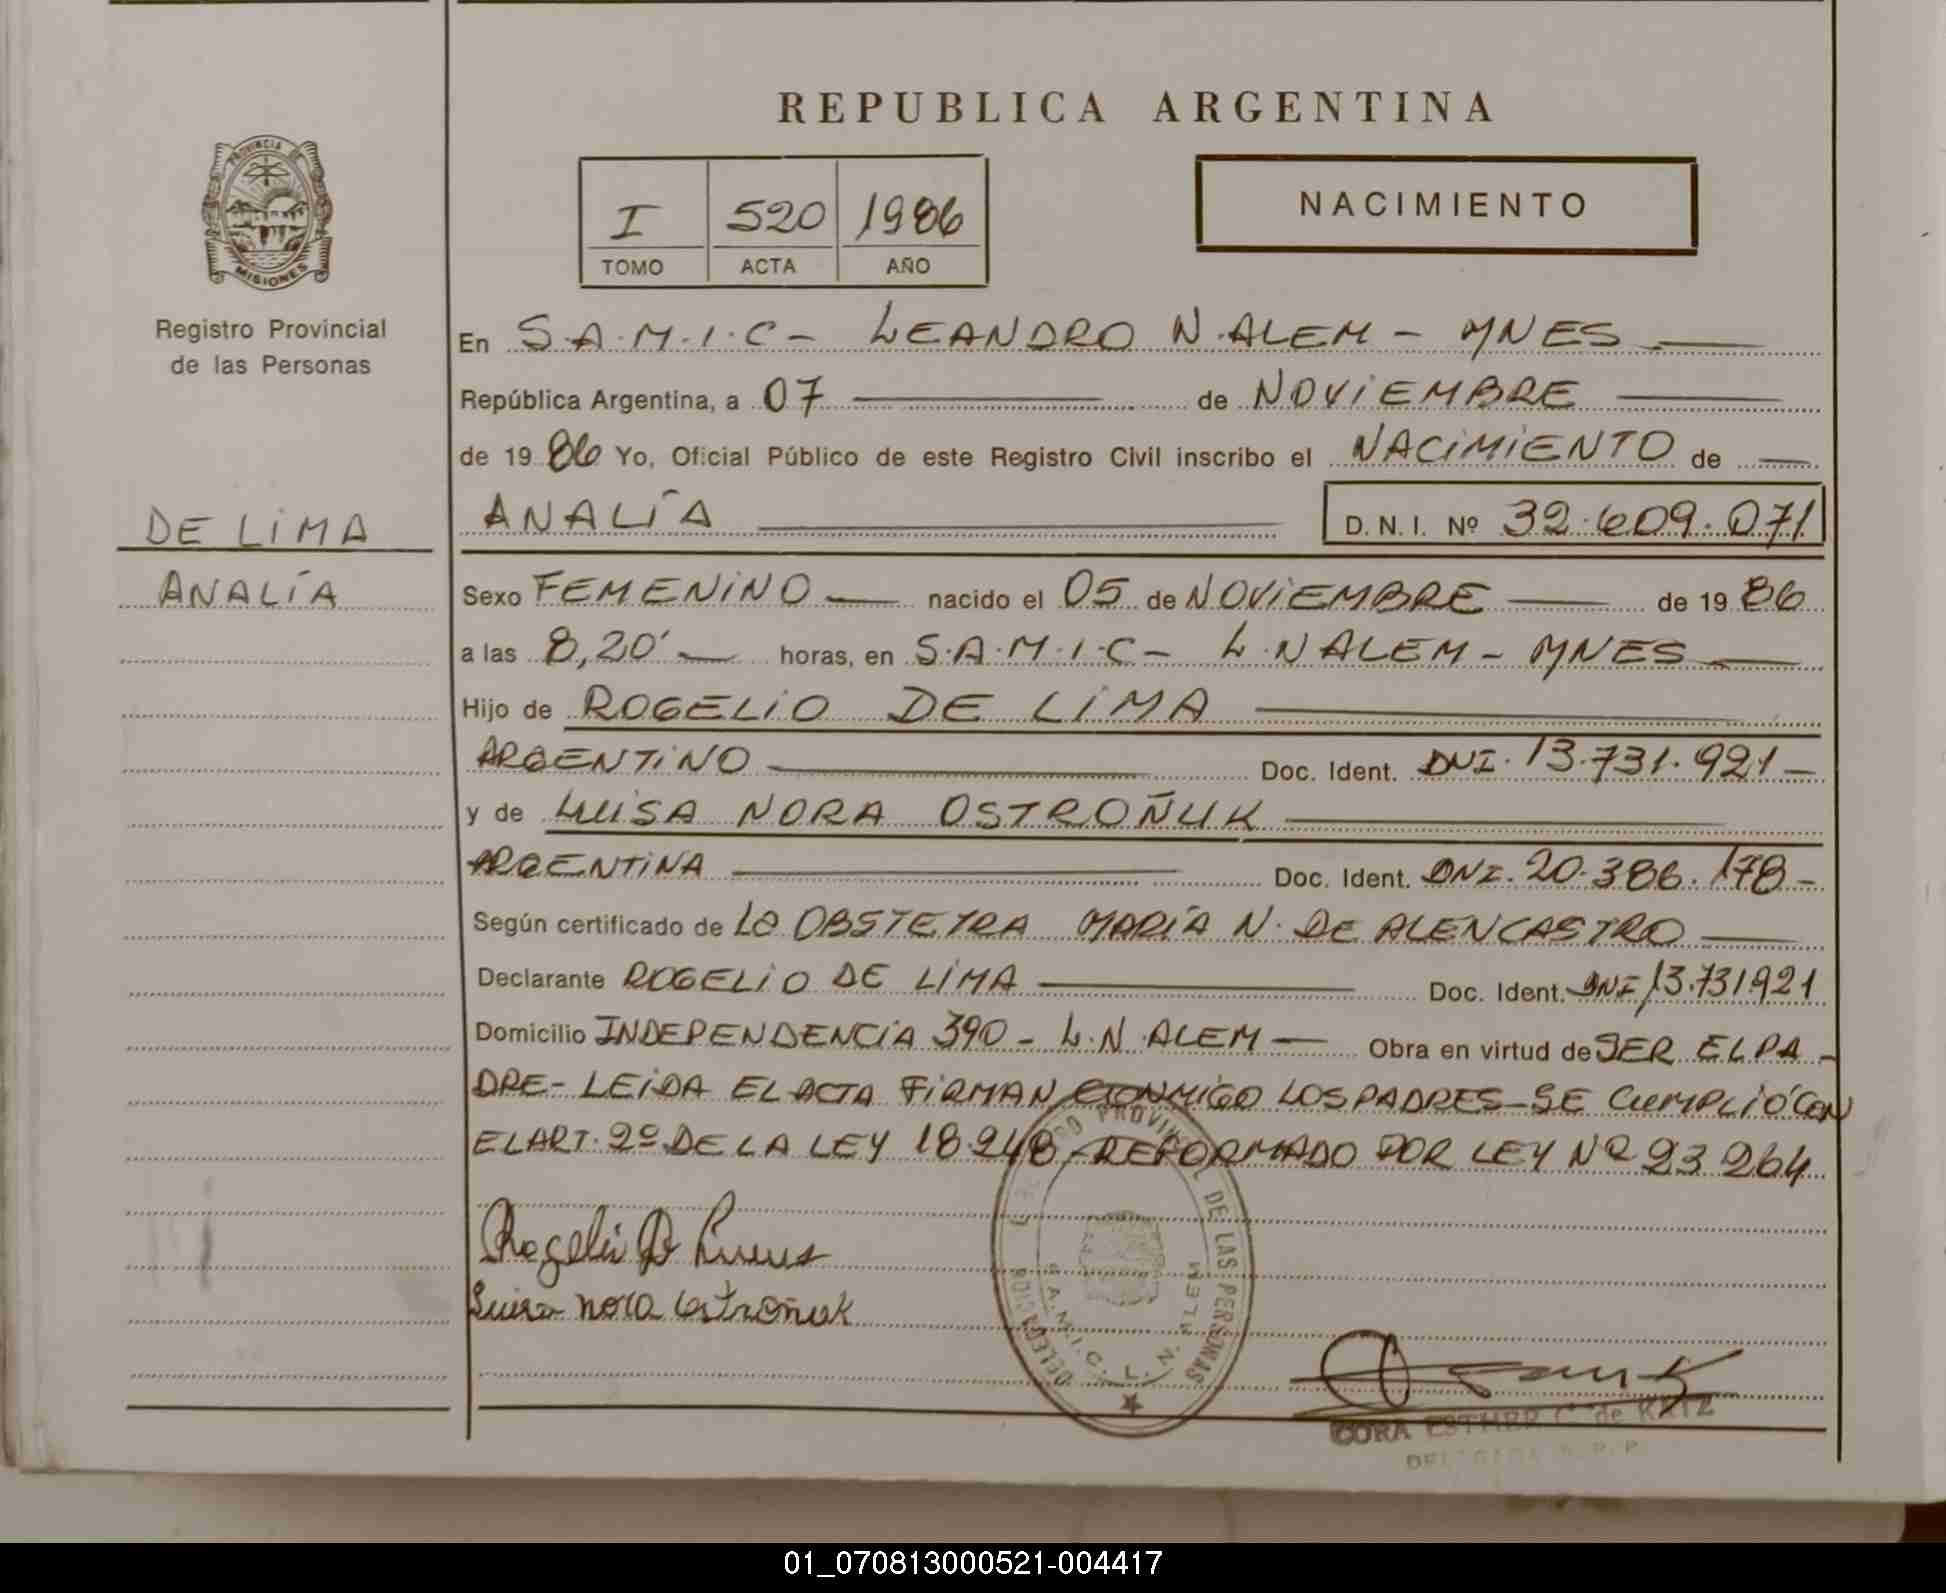 REPUBLICA ARGENTINA
PROVINCIA DE
MISIONES
Registro Provincial
de las Personas
I 520 1986
TOMO ACTA AÑO
NACIMIENTO
En S.A.M.I.C - LEANDRO N. ALEM - MNES
República Argentina, a 07 de NOViEMBRE
de 19 86 Yo, Oficial Público de este Registro Civil inscribo el NACiMiENTO de
ANALÍA D. N. I. Nº 32.609.071
DE LiMA
ANALÍA
Sexo FEMENiNO nacido el 05 de NOViEMBRE de 19 86
a las 8,20' horas, en S.A.M.I.C - L.N ALEM - MNES
Hijo de ROGELiO DE LiMA
ARGENTiNO Doc. Ident. DNI. 13.731.921 -
y de LUiSA NORA OSTROÑUK
ARGENTiNA Doc. Ident. DNI. 20.386.178 -
Según certificado de LA OBSTETRA MARÍA N. DE ALENCASTRO
Declarante ROGELiO DE LIMA Doc. Ident. DNI 13.731921
Domicilio INDEPENDENCiA 390 - L.N. ALEM - Obra en virtud de SER EL PA -
DRE - LEiDA EL ACTA FiRMAN CONMiGO LOS PADRES - SE CUMPLIÓ CON
EL ART. 2º DE LA LEY 18.248 - REFORMADO POR LEY Nº 23 264
Rogelio D Lima
Luisa nora Ostroñuk
REGISTRO PROVINCIAL DE LAS PERSONAS
DELEGACION
S.A.M.I.C. L. N. ALEM
CORA ESTHER C. de KETZ
01_070813000521-004417